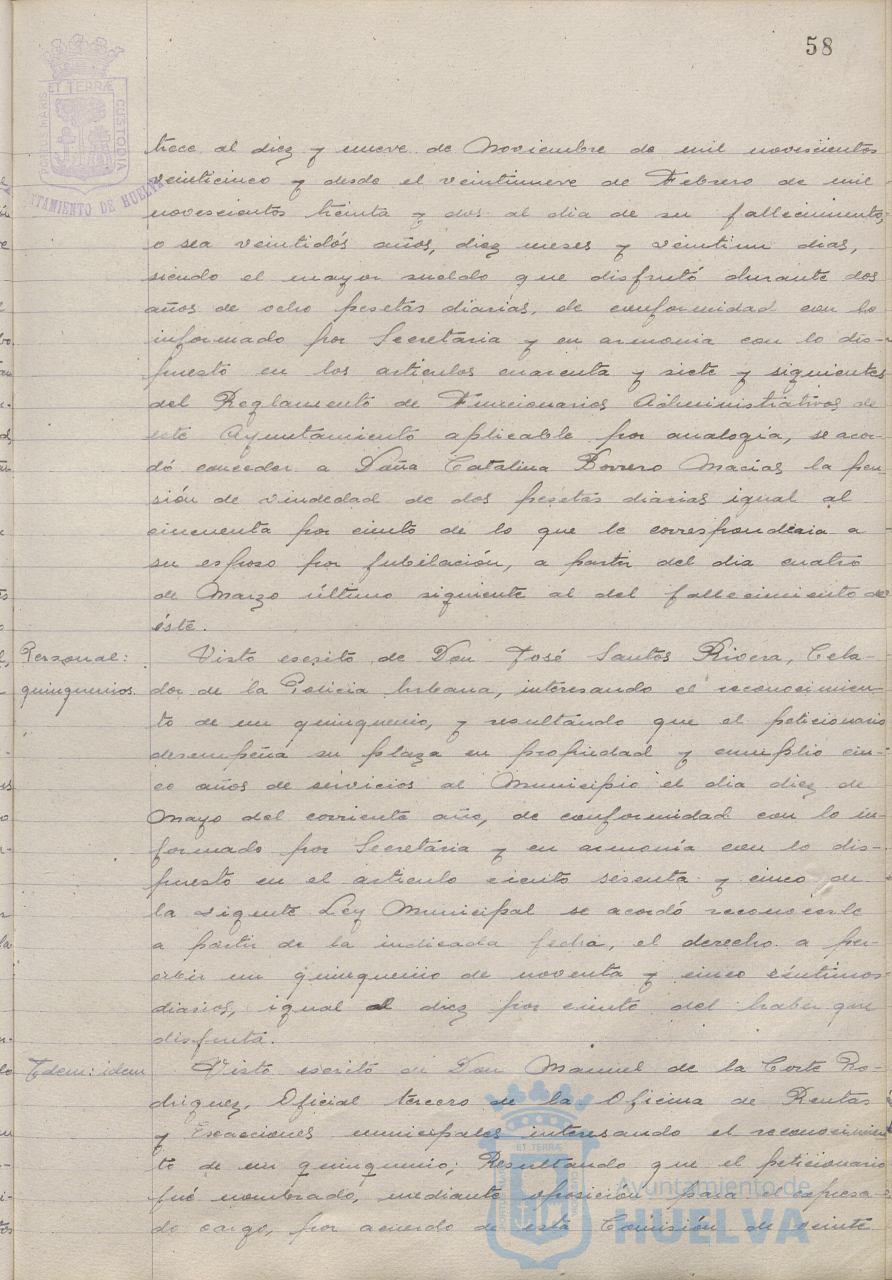 58
PORTUS MARIS ET TERRÆ CUSTODIA
AYUNTAMIENTO DE HUELVA
trece al diez y nueve de Noviembre de mil novescientos
veinticinco y desde el veintinueve de Febrero de mil
novescientos treinta y dos al dia de su fallecimiento,
o sea veintidós años, diez meses y veintiun dias,
siendo el mayor sueldo que disfrutó durante dos
años de ocho pesetas diarias, de conformidad con lo
informado por Secretaria y en armonia con lo dis-
puesto en los articulos cuarenta y siete y siguientes
del Reglamento de Funcionarios Administrativos de
este Ayuntamiento aplicable por analogia, se acor-
dó conceder a Doña Catalina Borrero Macias la pen-
sión de viudedad de dos pesetas diarias igual al
cincuenta por ciento de lo que le corresponderia a
su esposo por jubilación, a partir del dia cuatro
de Marzo último siguiente al del fallecimiento de
éste.
Personal:
quinquenios.
Visto escrito de Don José Santos Rivera, Cela-
dor de la Policia Urbana, interesando el reconocimien-
to de un quinquenio, y resultando que el peticionario
desempeña su plaza en propiedad y cumplio cin-
co años de servicios al Municipio el dia diez de
Mayo del corriente año, de conformidad con lo in-
formado por Secretaria y en armonía con lo dis-
puesto en el articulo ciento sesenta y cinco de
la vigente Ley Municipal se acordó reconocerle
a partir de la indicada fecha, el derecho a per-
cibir un quinquenio de noventa y cinco céntimos
diarios, igual al diez por ciento del haber que
disfruta.
Idem: idem
Visto escrito de Don Manuel de la Corte Ro-
driguez, Oficial tercero de la Oficina de Rentas
y Exacciones municipales interesando el reconocimien
to de un quinquenio; Resultando que el peticionario
fué nombrado, mediante oposición para el expresa-
do cargo, por acuerdo de esta Comisión de veinte
ET TERRÆ
Ayuntamiento de
HUELVA